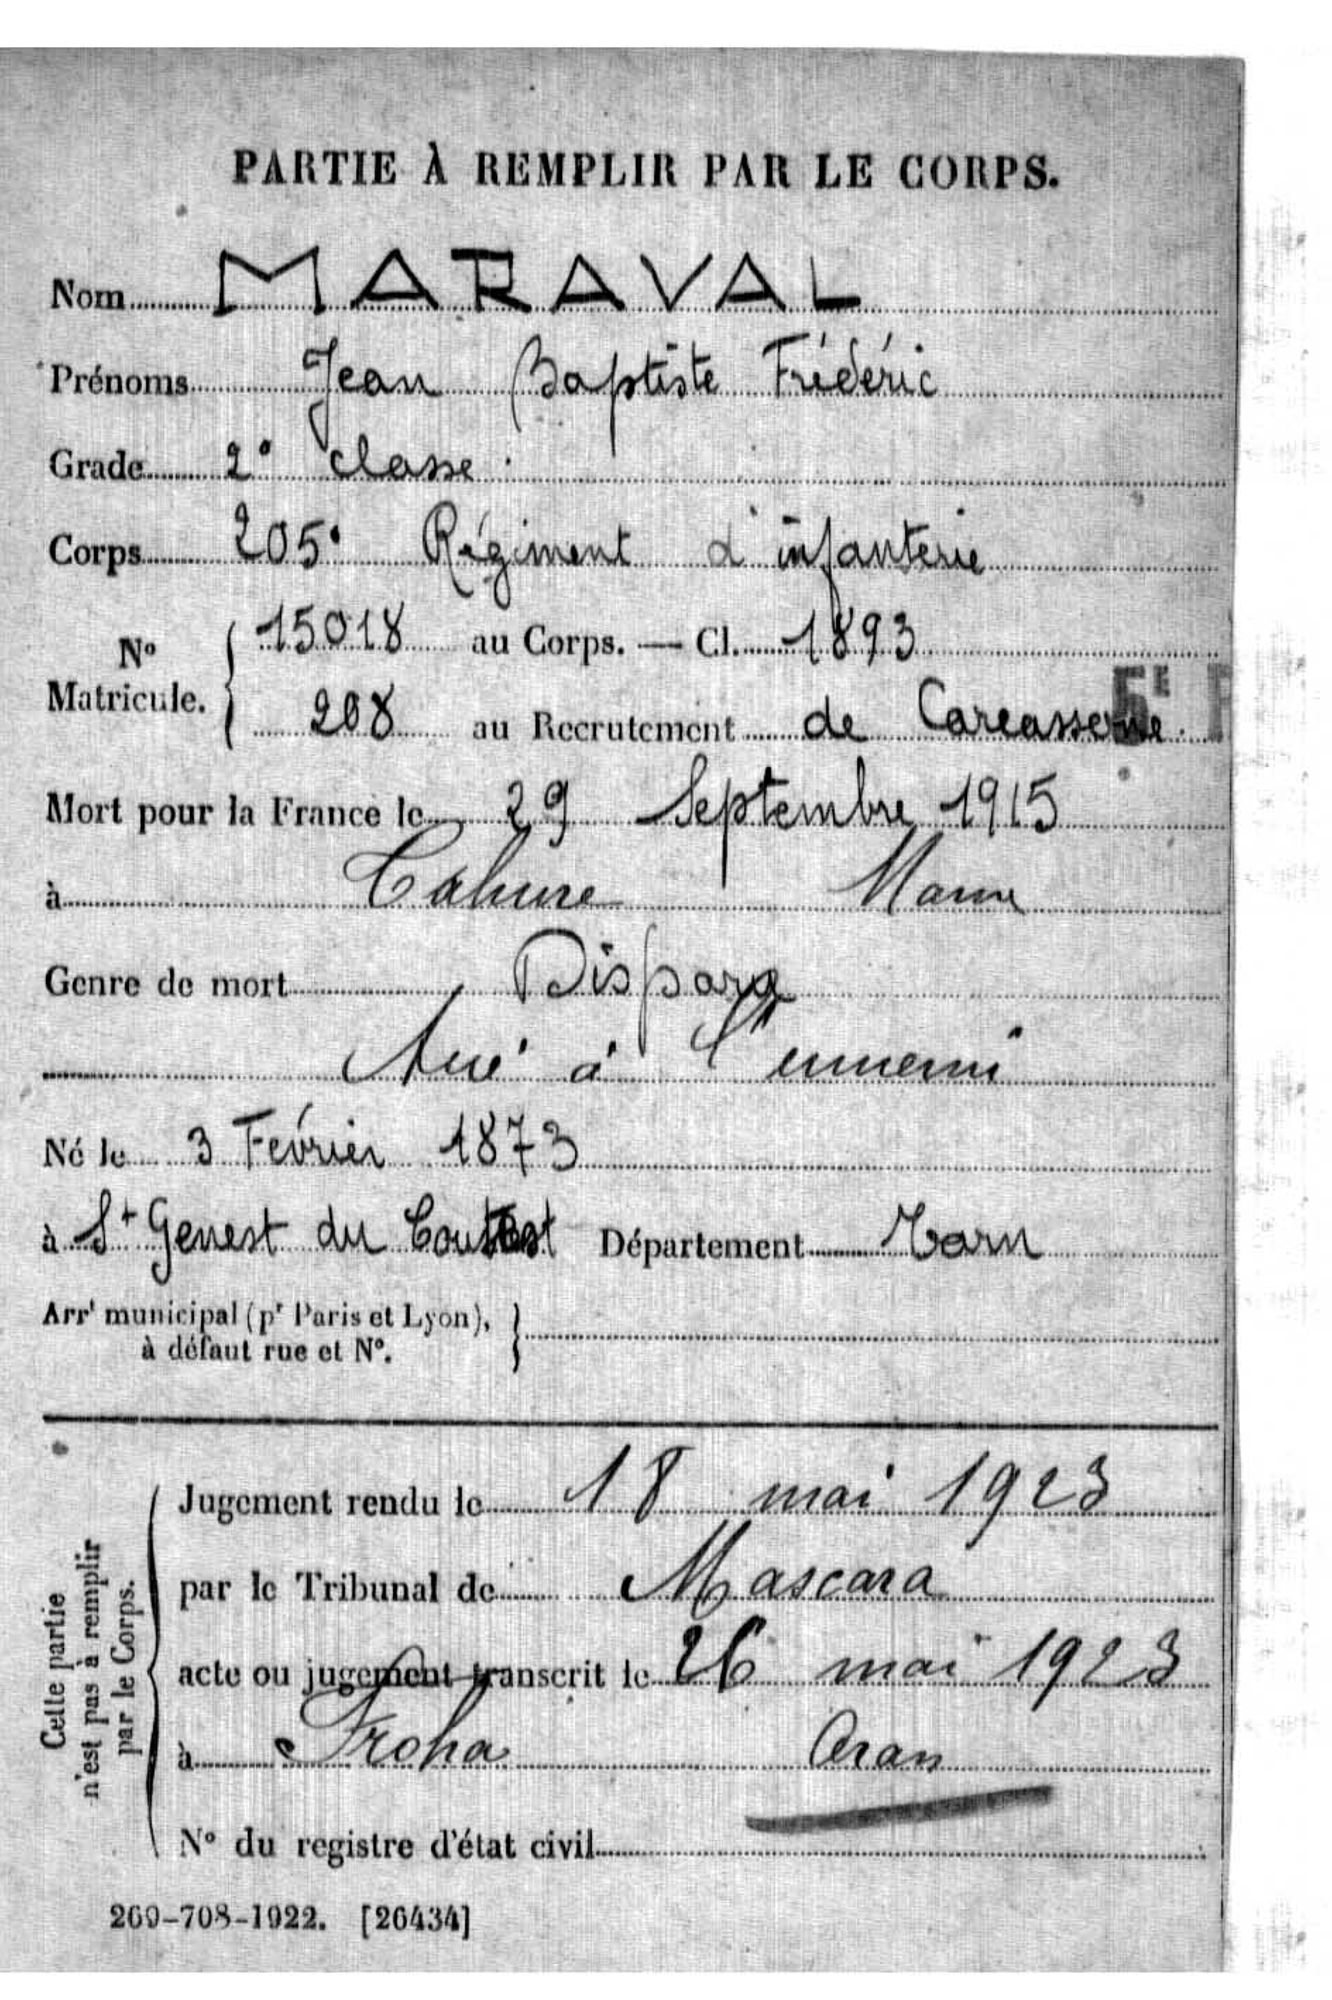 PARTIE À REMPLIR PAR LE CORPS.
Nom MARAVAL
Prénoms Jean Baptiste Frédéric
Grade 2e classe
Corps 205e Régiment d'infanterie
No Matricule. { 15018 au Corps. — Cl. 1893
208 au Recrutement de Carcassonne
5E
Mort pour la France le 29 Septembre 1915
à Tahure Marne
Genre de mort Disparu
Tué à l'ennemi
Né le 3 Février 1873
à St Genest du Contest Département Tarn
Arrt municipal (pr Paris et Lyon),
à défaut rue et No. }
Cette partie
n'est pas à remplir
par le Corps.
Jugement rendu le 18 mai 1923
par le Tribunal de Mascara
acte ou jugement transcrit le 26 mai 1923
à Froha Oran
No du registre d'état civil
269-708-1922. [26434]